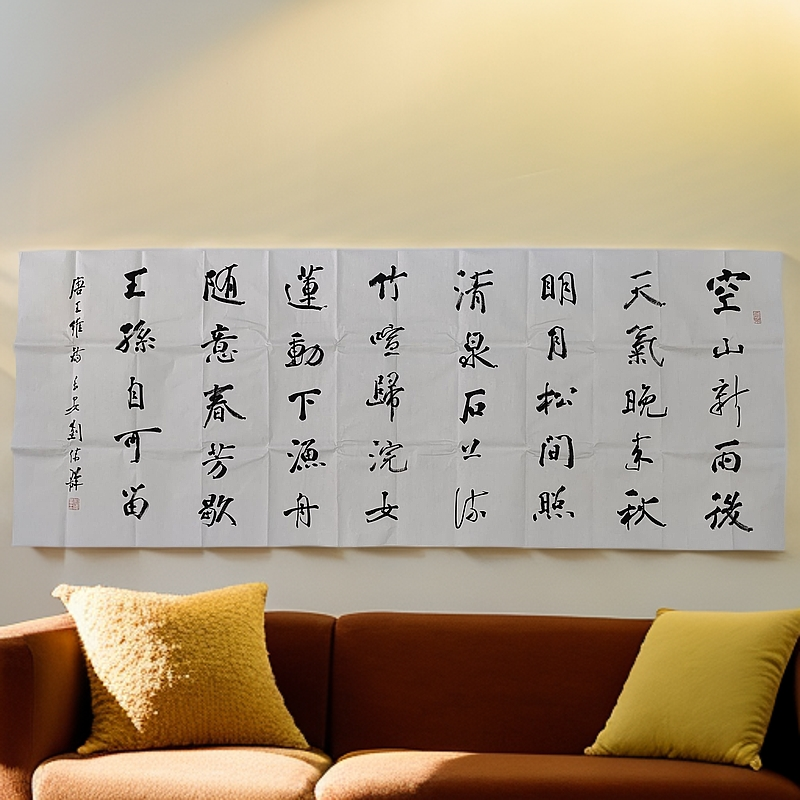 空山新雨後
天氣晚来秋
明月松間照
清泉石上流
竹喧歸浣女
蓮動下漁舟
随意春芳歇
王孫自可留
唐王維詩